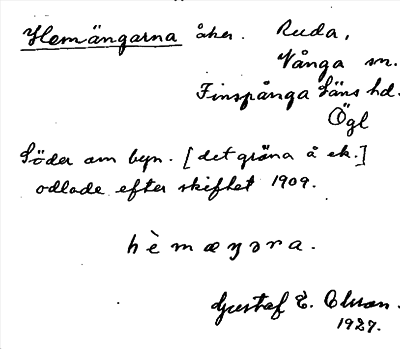 Hemängarna åker. Ruda,
Vånga sn.
Finspånga läns hd.
Ögl
Söder om byn. [det gröna å ek.]
odlade efter skiftet 1909.
hèmæŋɔra.
Gustaf E. Olsson.
1927.